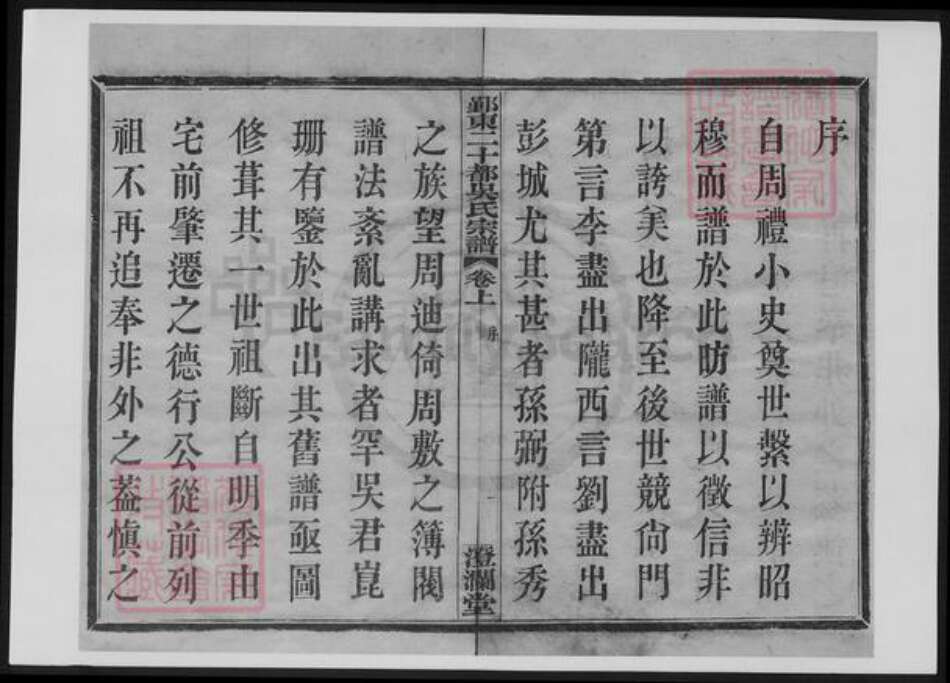 序
自周禮小史奠世繫以辨昭
穆而譜於此昉譜以徵信非
以誇美也降至後世競尙門
第言李盡出隴西言劉盡出
彭城尤其甚者孫弼附孫秀
鄞東二十都吳氏宗譜 卷上 序 澄瀾堂
之族望周迪倚周敷之簿閥
譜法紊亂講求者罕吳君崑
珊有鑒於此出其舊譜亟圖
修葺其一世祖斷自明季由
宅前肇遷之德行公從前列
祖不再追奉非外之蓋慎之